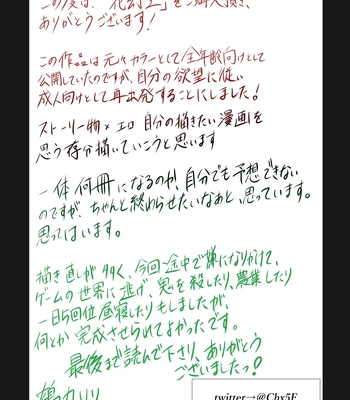 この度は、「花幻上」をご購入頂き、
ありがとうございます!
この作品は元々カラーとして全年齢向けとして
公開していたのですが、自分の欲望に従い
成人向けとして再出発することにしました!
ストーリー物×エロ 自分の描きたい漫画を
思う存分描いていこうと思います
一体何冊になるのか、自分でも予想できない
のですが、ちゃんと終わらせたいなあと、思っています。
思ってはいます。
描き直しが多く、今回途中で嫌になりかけて、
ゲームの世界に逃げ、鬼を殺したり、農業したり
一日5回位昼寝したりもしましたが、
何とか完成させられてよかったです。
最後まで読んで下さり、ありがとう
ございましたっ!
twitter→@Cbx5F